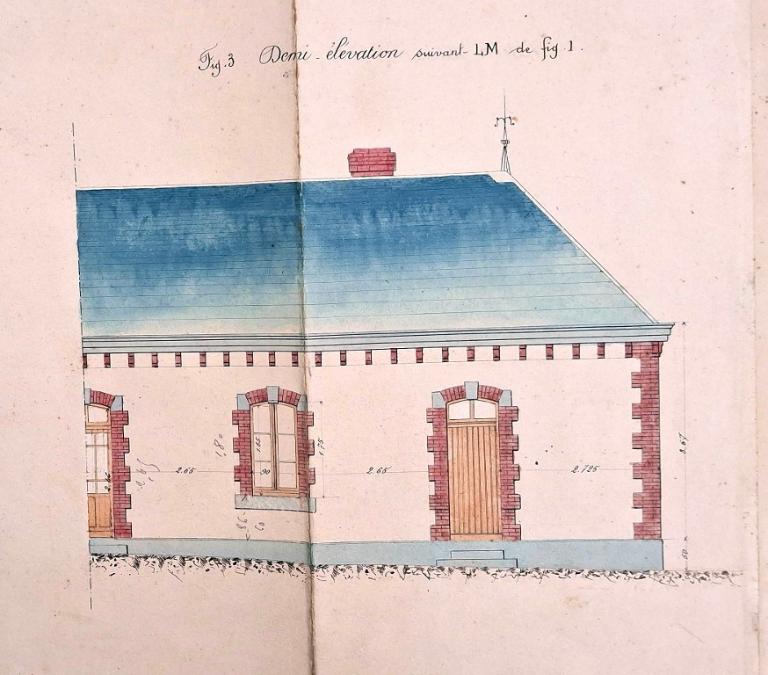 Fig. 3 Demi-élévation suivant LM de fig. 1.
3.67
1.80
1.85
1.75
2.65
90
2.65
2.725
86
60
50